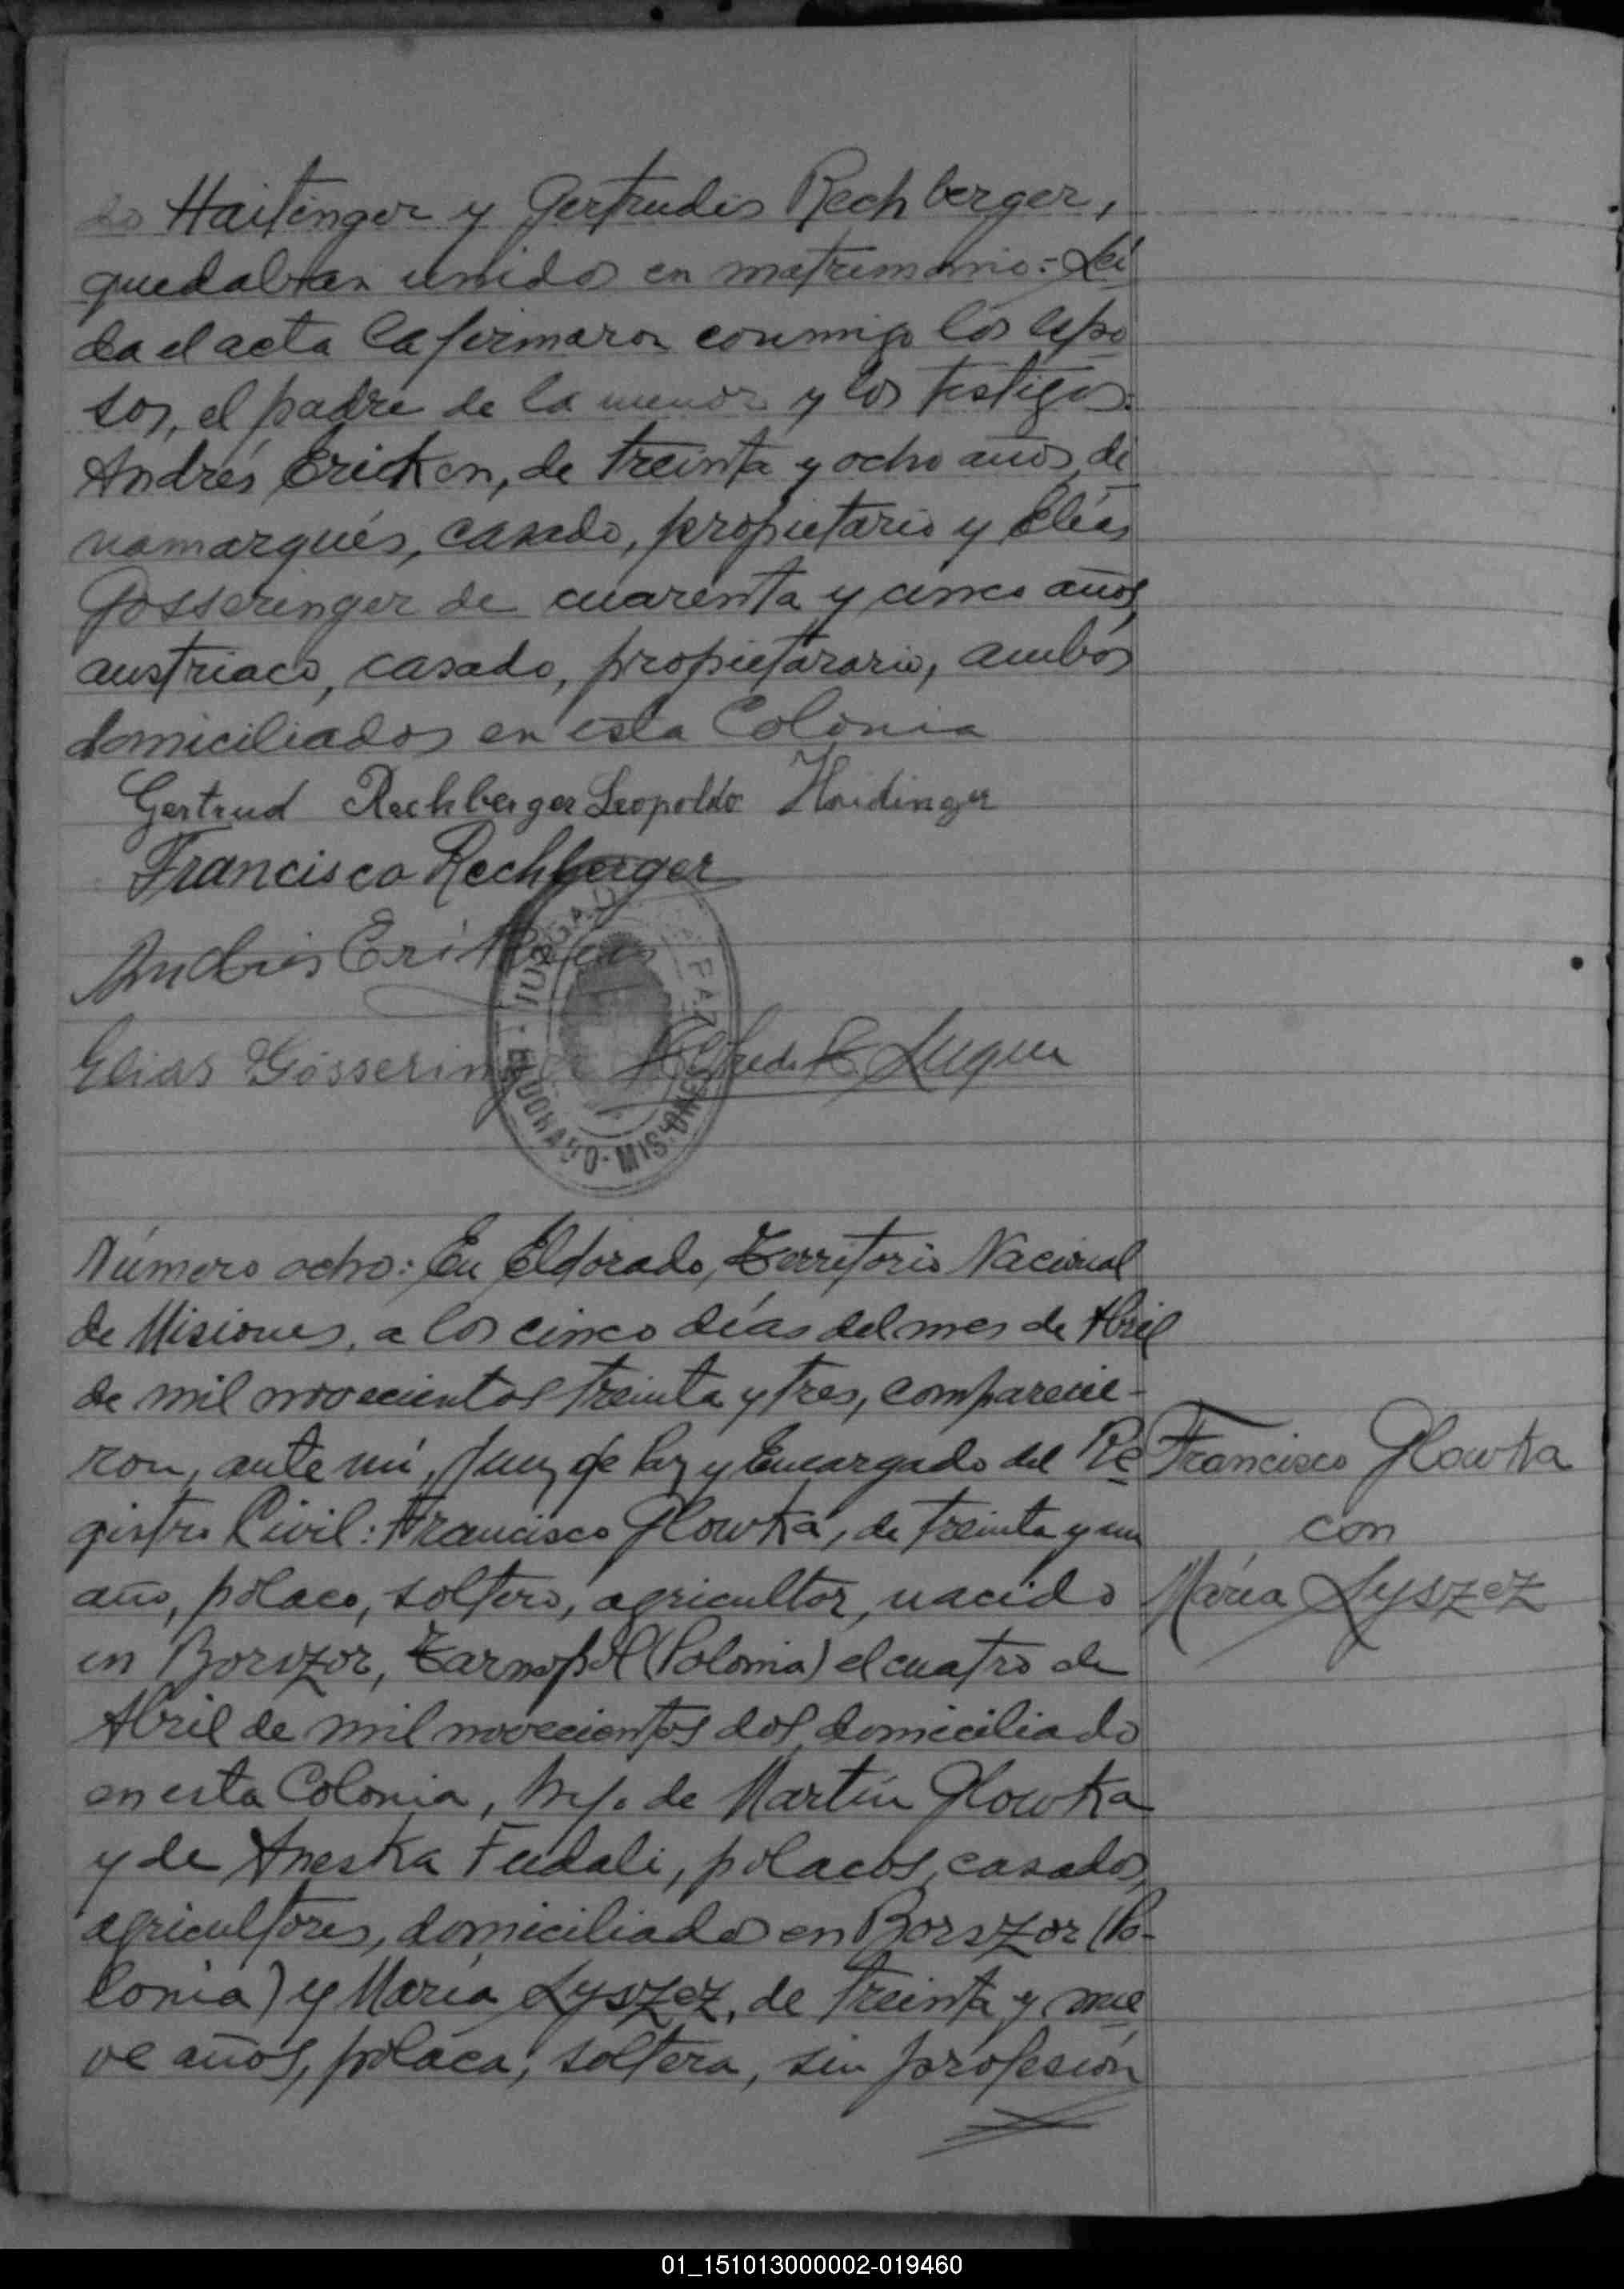 do Haitinger y Gertrudis Rechberger,
quedaban unidos en matrimonio:- Lei
da el acta la firmaron conmigo los espo
sos, el padre de la menor y los testigos:
Andrés Ericken, de treinta y ocho años, di
namarqués, casado, propietario y Elías
Gosseringer de cuarenta y cinco años,
austriaco, casado, propietarario, ambos
domiciliados en esta Colonia
Gertrud Rechberger Leopoldo Haidinger
Francisco Rechberger
Andrés
Elias Gösseringer Alfredo Luque
JUZGADO PAZ
ELDORADO - MISIONES
Número ocho: En Eldorado, Territorio Nacional
de Misiones, a los cinco días del mes de Abril
de mil novecientos treinta y tres, comparecie-
ron, ante mí, Juez de Paz y Encargado del Re
gistro Civil: Francisco Glowka, de treinta y un
año, polaco, soltero, agricultor, nacido
en Borszor, Tarnopol (Polonia) el cuatro de
Abril de mil novecientos dos, domiciliado
en esta Colonia, hijo de Martín Glowka
y de Aneska Fudali, polacos, casados,
agricultores, domiciliados en Borszor (Po-
lonia) y María Lyszez, de treinta y nue
ve años, polaca, soltera, sin profesión
Francisco Glowka
con
María Lyszez
01_151013000002-019460